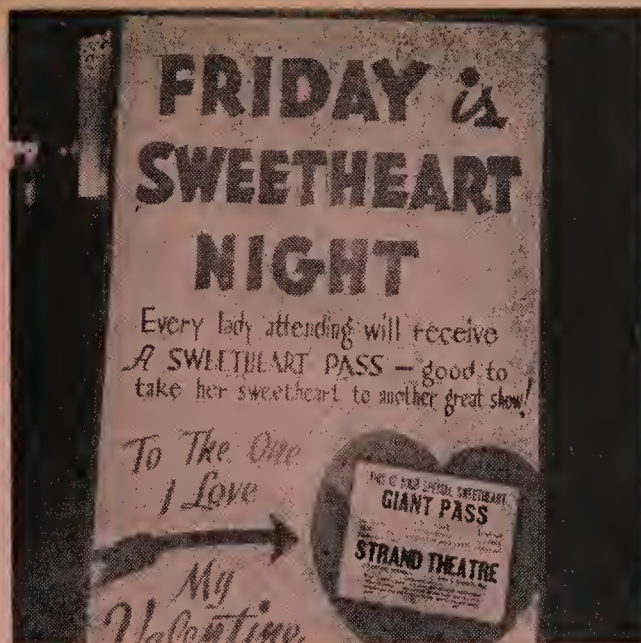 FRIDAY is
SWEETHEART
NIGHT
Every lady attending will receive
A SWEETHEART PASS — good to
take her sweetheart to another great show!
To The One
I Love
THIS IS YOUR SPECIAL SWEETHEART
GIANT PASS
STRAND THEATRE
My
Valentine